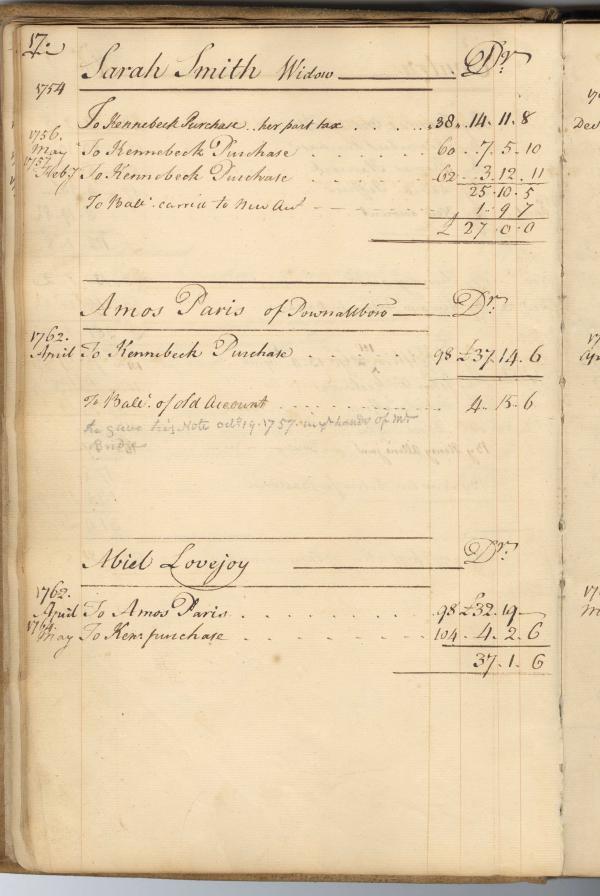 17.
Sarah Smith Widow Dr.
1754
To Kennebeck Purchase her part tax 38 14 11 8
1756.
May To Kennebeck Purchase 60 7 5 10
1757.
Feby To Kennebeck Purchase 62 3 12 11
25 10 5
To Balc. carried to New Acct 1 9 7
£ 27 0 0
Amos Paris of Pownalboro Dr.
1762.
April To Kennebeck Purchase 98 £37 14 6
To Balc. of old Account 4 15 6
he gave his Note octr. 19. 1757. in ye hands of Mr
Bridge
Abiel Lovejoy Dr.
1762.
April To Amos Paris 98 £32 19
1764.
May To Ken. purchase 104 4 2 6
37 1 6